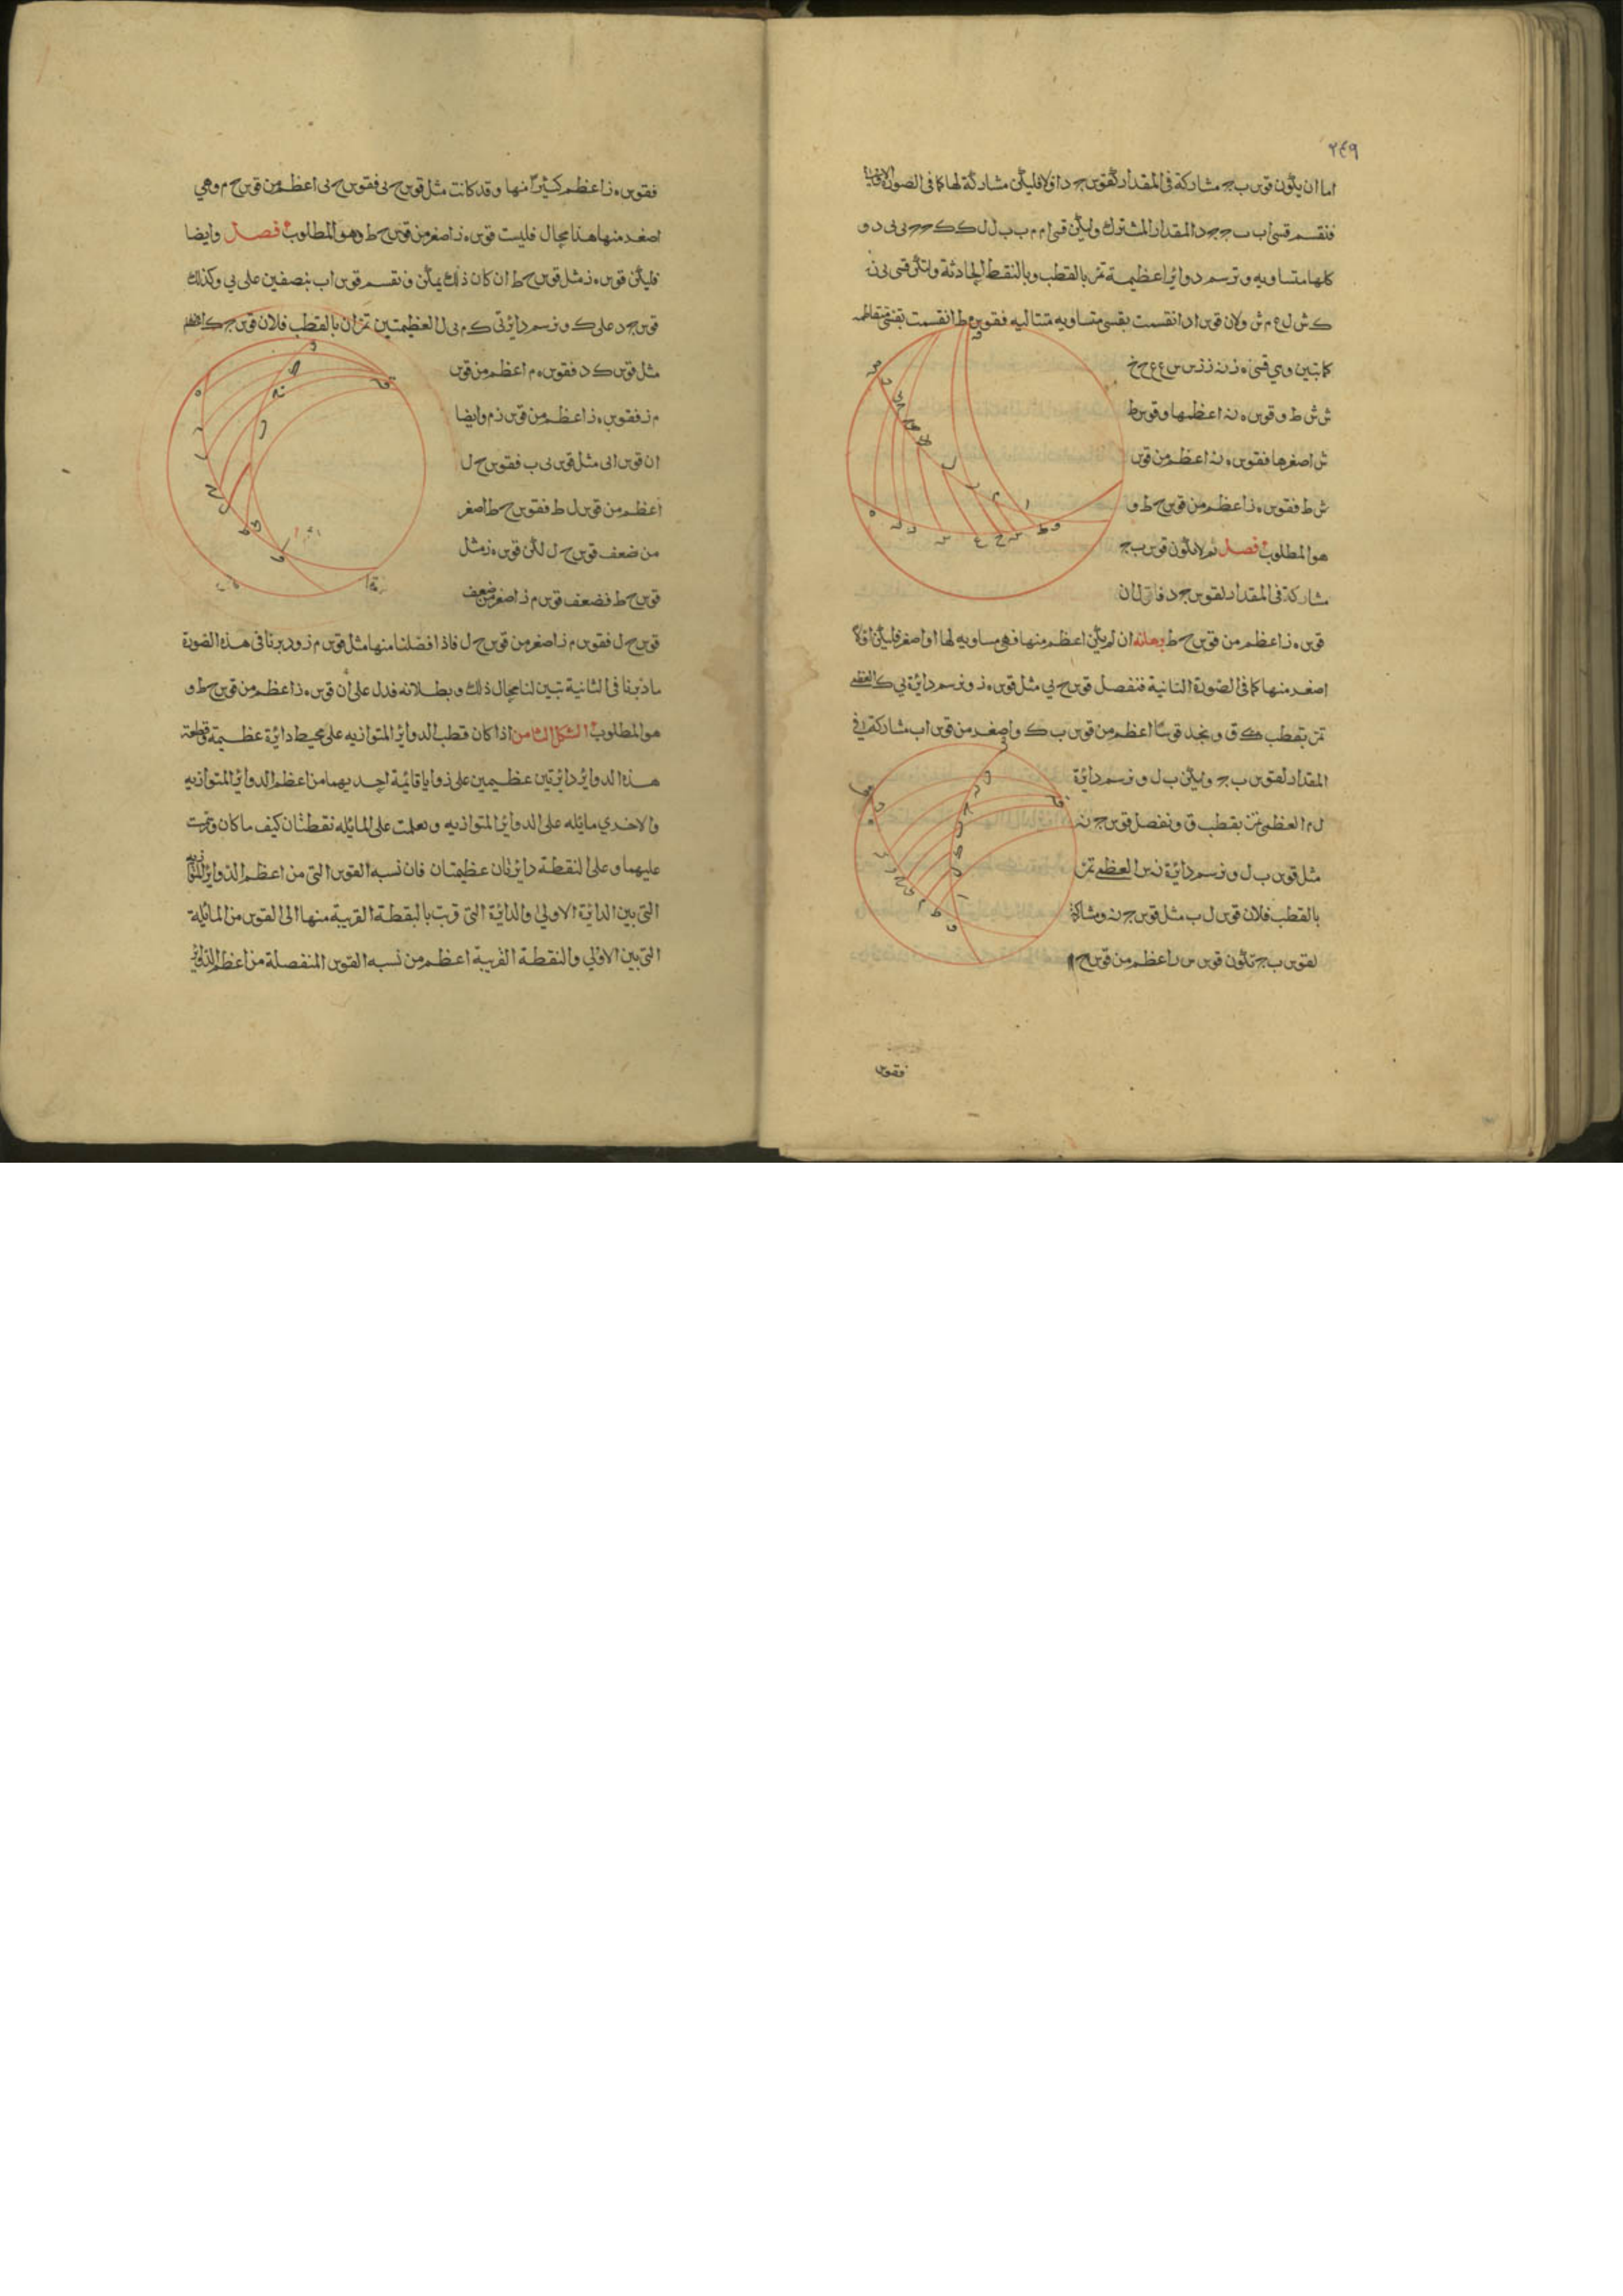 ٢٤٩
اما ان يكون قوس ب ج مشاركة فى المقدار لقوس ج د او لا فليكن مشاركة لها كما فى الصورة الاولى
فنقسم قسى اب ب ج ج د المقدار المشترك وليكن قسى ام م ب ب ل ل ك ك ح ح ى ى د و
كلها متساويه ونرسم دوائر اعظيمة تمر بالقطب وبالنقط الحادثة ولتكن قسى ى ن
ك ش ل ع م ش ولان قوس اد انقسمت بقسى متساويه متتاليه فقوس ه ط انقسمت بقسى متفاضله
كما تبين وهى قسى ه ن ن ز ز س س ع ع ح ح
ش ش ط و قوس ه ن اعظمها وقوس ط
ش اصغرها فقوس ه ن اعظم من قوس
ش ط فقوس ه ز اعظم من قوس ح ط و
هو المطلوب فصل ثم لا تكون قوس ب ج
مشاركة فى المقدار لقوس ج د فاقول ان
قوس ه ز اعظم من قوس ح ط برهانه ان لم يكن اعظم منها فهى مساويه لها او اصغر فليكن اولا
اصغر منها كما فى الصورة الثانية فنفصل قوس ح ى مثل قوس ه ز ونرسم دائرة ى ك العظمى
تمر بقطب ق ونجد قوسا اعظم من قوس ب ك واصغر من قوس اب مشاركة فى
المقدار لقوس ب ج وليكن ب ل ونرسم دائرة
ل م العظمى تمر بقطب ق ونفصل قوس ج ن
مثل قوس ب ل ونرسم دائرة ن س العظمى تمر
بالقطب فلان قوس ل ب مثل قوس ج ن ومشاركة
لقوس ب ج تكون قوس س ز اعظم من قوس ح م
فقوس
فقوس ه ز اعظم كثيرا منها وقد كانت مثل قوس ح ى فقوس ح ى اعظم من قوس ح م وهى
اصغر منها هذا محال فليست قوس ه ز اصغر من قوس ح ط وهو المطلوب فصل وايضا
فليكن قوس ه ز مثل قوس ح ط ان كان ذلك يمكن ونقسم قوس اب بنصفين على ى وكذلك
قوس ج د على ك ونرسم دائرتى ك م ى ل العظيمتين تمران بالقطب فلان قوس ج ك
مثل قوس ك د فقوس ه م اعظم من قوس
م ز فقوس ه ز اعظم من قوس ز م وايضا
ان قوس اى مثل قوس ى ب فقوس ح ل
اعظم من قوس ل ط فقوس ح ط اصغر
من ضعف قوس ح ل لكن قوس ه ز مثل
قوس ح ط فضعف قوس م ز اصغر من ضعف
قوس ح ل فقوس م ز اصغر من قوس ح ل فاذا فصلنا منها مثل قوس م ز ودبرنا فى هذه الصورة
ما دبرنا فى الثانية تبين لنا محال ذلك وبطلانه فدل على ان قوس ه ز اعظم من قوس ح ط و
هو المطلوب الشكل الثامن اذا كان قطب الدوائر المتوازيه على محيط دائرة عظيمة وقطعت
هذه الدوائر دائرتين عظيمين على زوايا قائمة احديهما من اعظم الدوائر المتوازيه
والاخرى مائله على الدوائر المتوازيه وتعلمت على المائله نقطتان كيف ما كان ومرت
عليهما وعلى النقطة دائرتان عظيمتان فان نسبه القوس التى من اعظم الدوائر المتوازيه
التى بين الدائرة الاولى والدائرة التى قربت بالنقطة القريبة منها الى القوس من المائلة
التى بين الاولى والنقطة القريبة اعظم من نسبه القوس المنفصلة من اعظم الدوائر